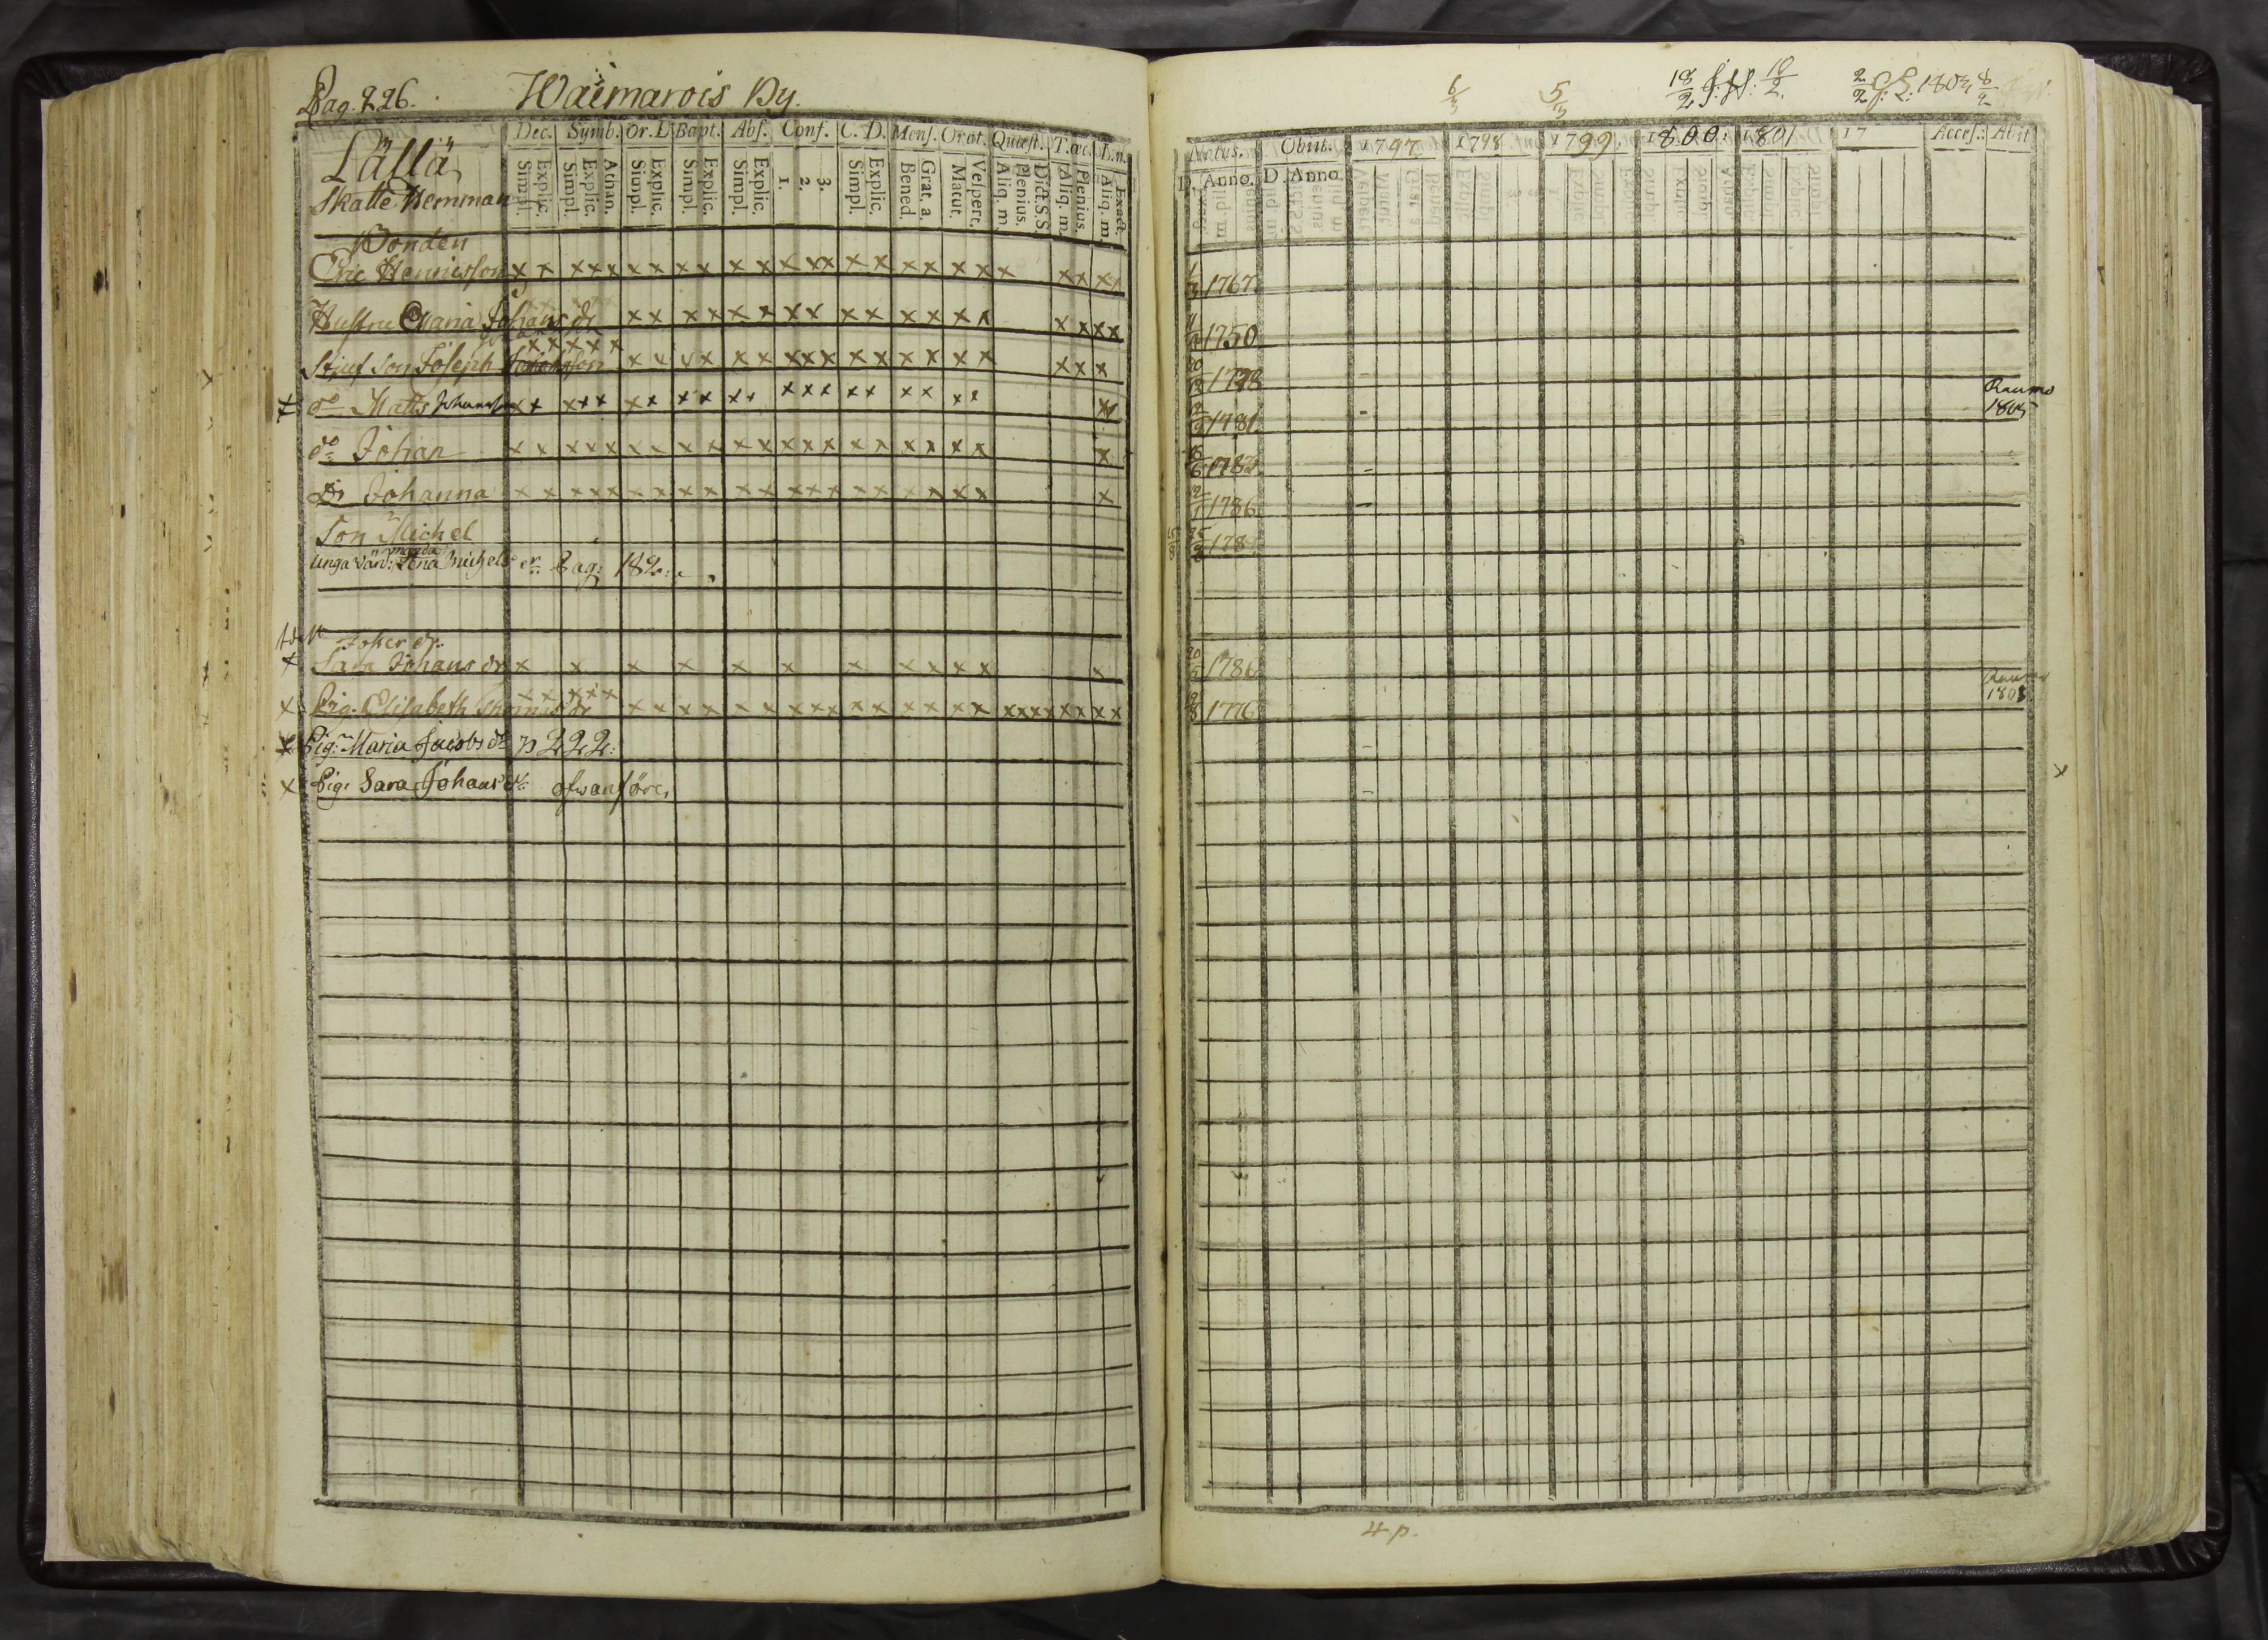 Pag. 226. Waimarois By.
Lällä
Skatte Hemman
Dec. Symb. Or. D Bapt. Abs. Conf. C. D. Mens. Orat. Quæst. T. œc. L. n.
Simpl. Explic. Simpl. Explic. Athan. Simpl. Explic. Simpl. Explic. Simpl. Explic. 1. 2. 3. Simpl. Explic. Bened. Grat. a. Matut. Vespert. Aliq. m. Plenius. Dict. S.S. Aliq. m. Plenius. Aliq. m. Exact.
Bonden
Eric Henricsson x x x x x x x x x x x x x x x x x x x x x x x x x
Hustru Maria Johans dr x x x x x x x x x x x x x x x x x x
x x x x x
Stiuf Son Joseph x x x x x x x x x x x x x x x x x x
do Matts Johansson x x x x x x x x x x x x x x x x x x x x x
do Johan x x x x x x x x x x x x x x x x x x x x x
Dr Johanna x x x x x x x x x x x x x x x x x x x x x
Son Michel
unga värd: Michels dr Pag: 182
x Sara Johans dr x x x x x x x x x x x x
x x x x x
x Pig. Elisabeth Thomas dr x x x x x x x x x x x x x x x x x x x x x x
x Pig. Maria Jacobs dr p 222:
x Pig. Sara Johans dr ofwanföre,
6/3 5/3 18/2 J. W. 18/2 2/2 1804 8/2
Natus. Obiit. 1797 1798 1799 1800 1801 17 Acces. Abiit
D. Anno. D. Anno.
1767
1750
1778
1781 Raumo
1805
1783
12/1 1786
178
1786
1776 1803
4 p.